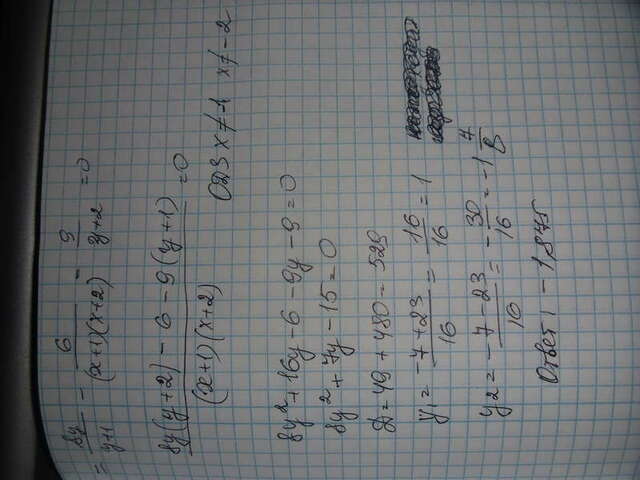 = 8y/(y+1) - 6/((x+1)(x+2)) - 9/(y+2) = 0
(8y(y+2) - 6 - 9(y+1))/((x+1)(x+2)) = 0
ОДЗ x ≠ 1 x ≠ -2
8y² + 16y - 6 - 9y - 9 = 0
8y² + 7y - 15 = 0
Д = 49 + 480 = 529
y₁ = (-7+23)/16 = 16/16 = 1
y₂ = (-7-23)/16 = -30/16 = -1 7/8
Ответ: -1,875